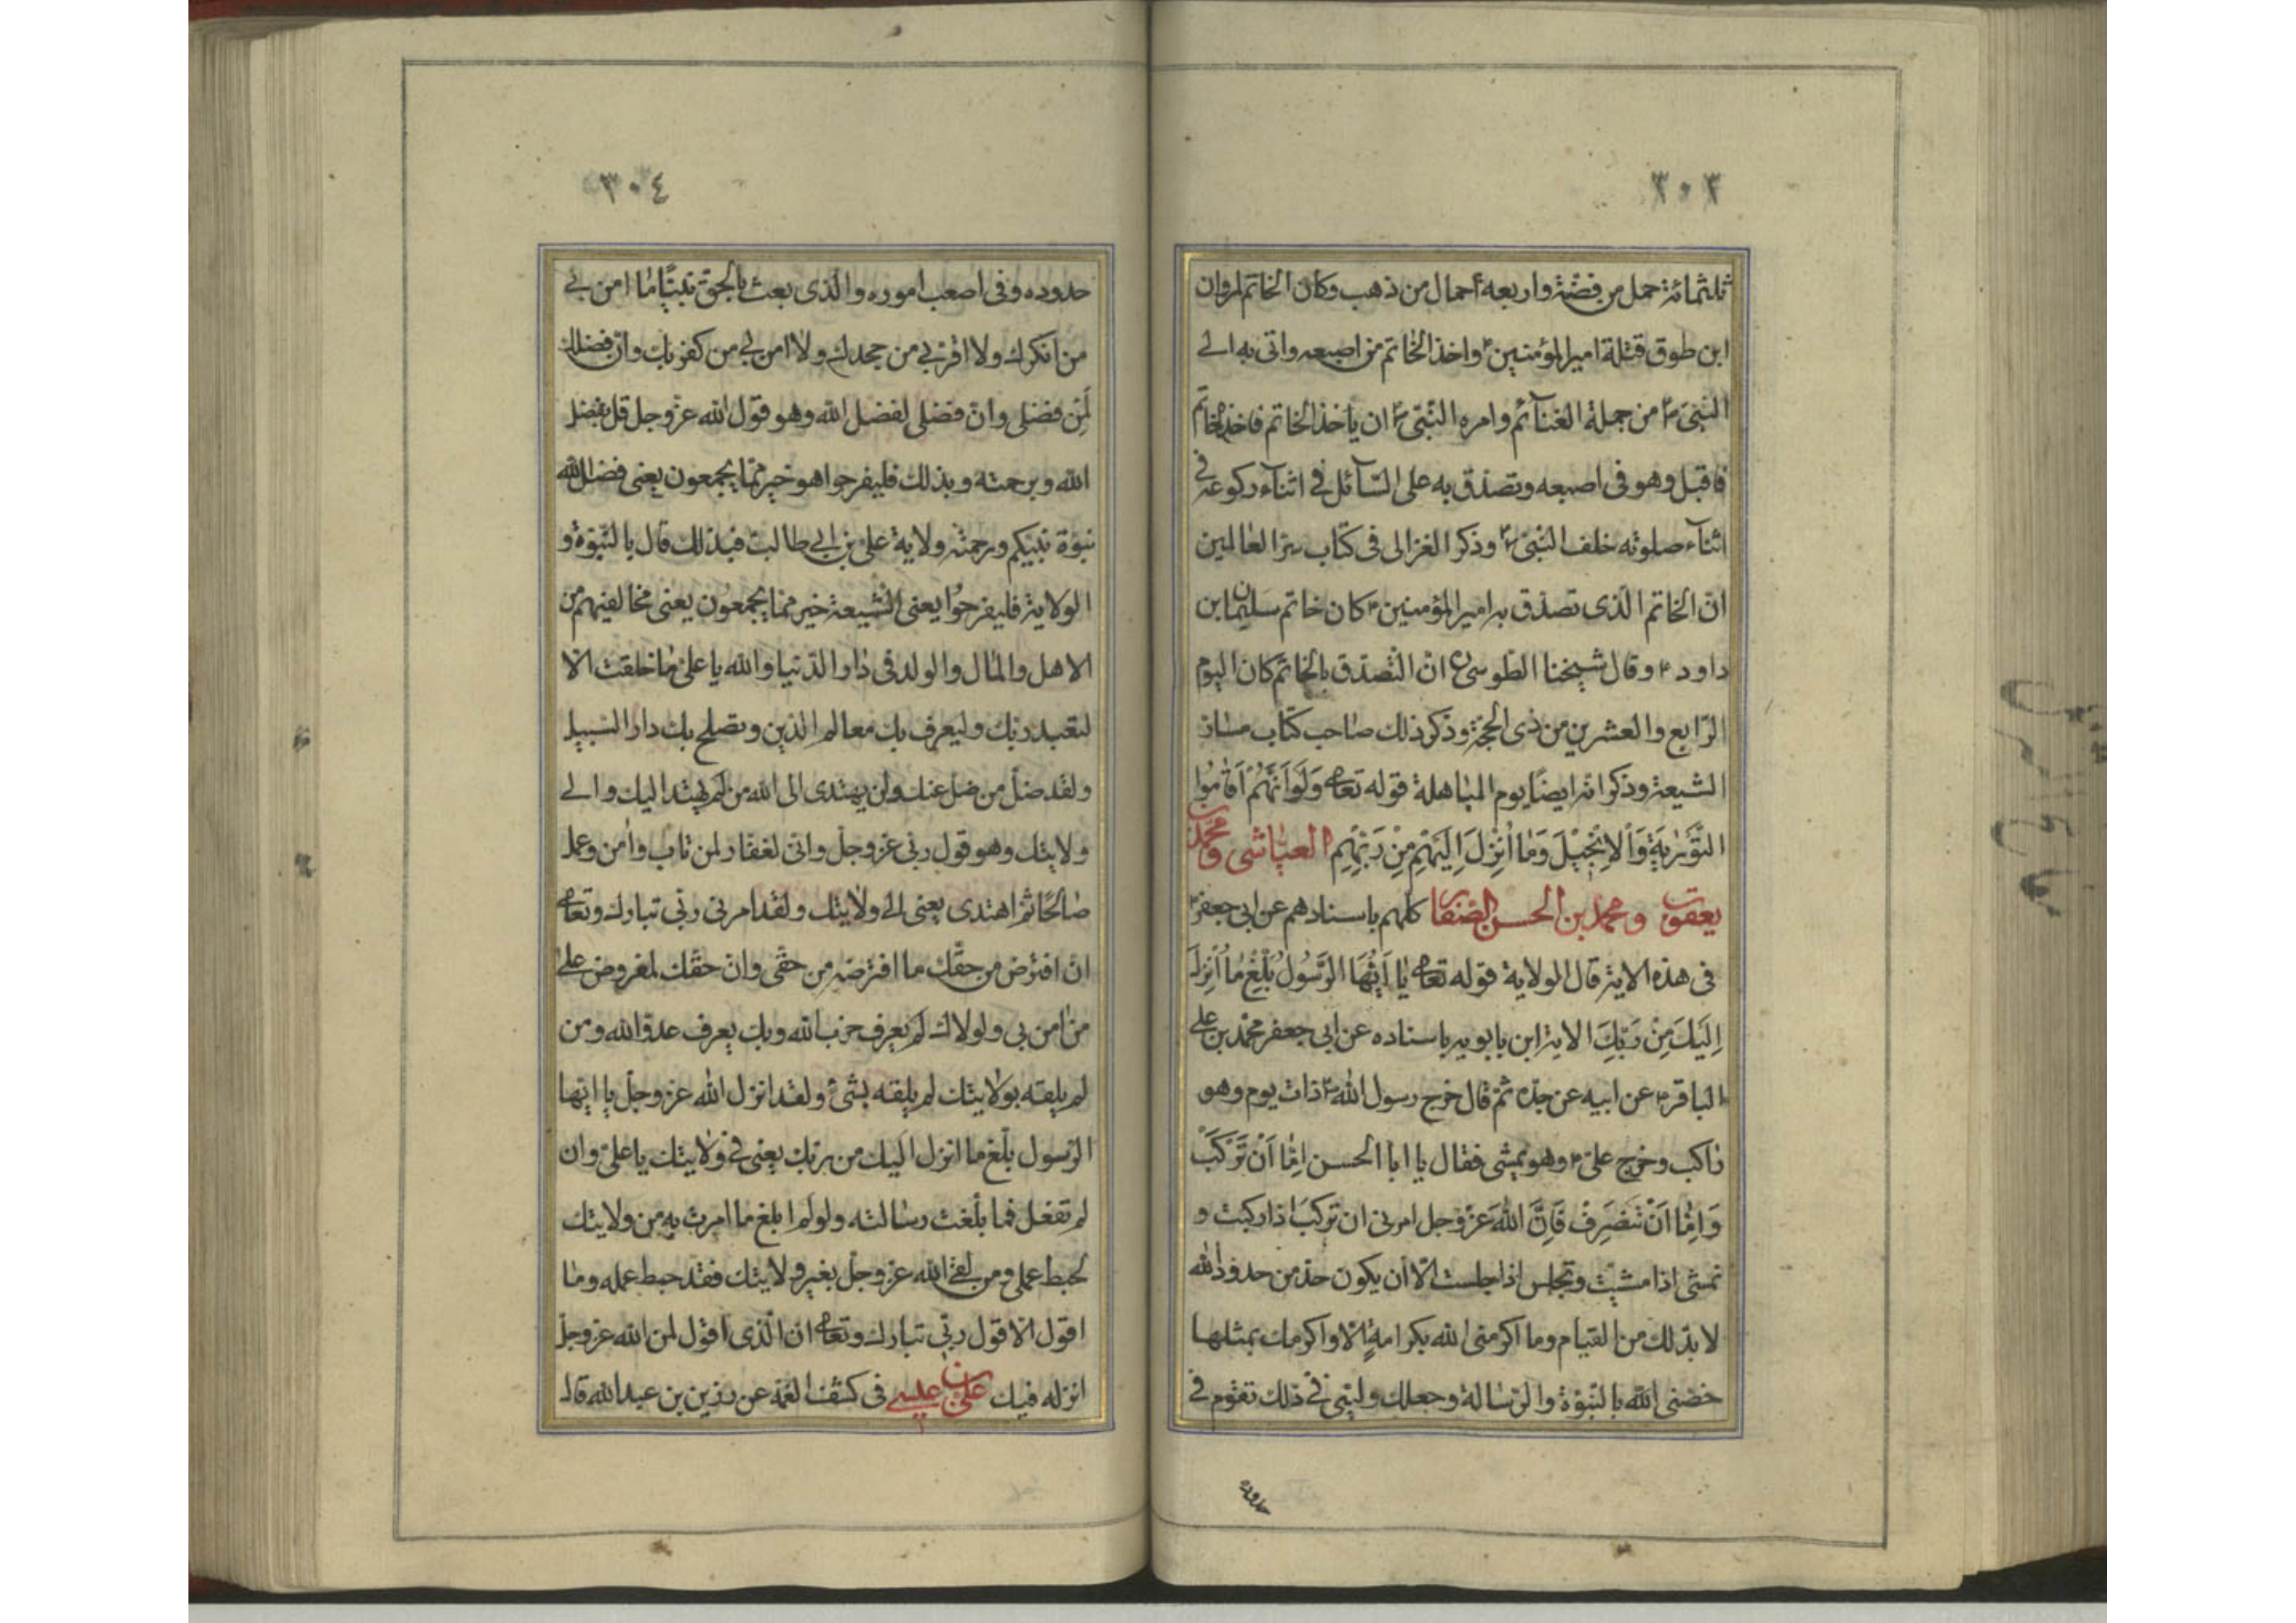 ٣٠٣
ثلثمائة حمل من فضّة واربعه احمال من ذهب وكان الخاتم لمروان
ابن طوق قتلة امير المؤمنين ۴ واخذ الخاتم من اصبعه واتى به الى
النبيّ ۴ من جملة الغنآئم وامره النّبيّ ۴ ان ياخذ الخاتم فاخذ الخاتم
فاقبل وهو فى اصبعه وتصدّق به على السّآئل فى اثنآء ركوعه فى
اثنآء صلوته خلف النبيّ ۴ وذكر الغزالى فى كتاب سرّ العالمين
انّ الخاتم الّذى تصدّق به امير المؤمنين ۴ كان خاتم سليمان ابن
داود ۴ وقال شيخنا الطّوسى انّ التّصدّق بالخاتم كان اليوم
الرّابع والعشرين من ذى الحجّة وذكر ذلك صاحب كتاب مسار
الشيعة وذكر انه ايضًا يوم المباهلة قوله تعالى وَلَوْ اَنَّهُمْ اَقَامُوا
التَّوْرٰيةَ وَالْاِنْجِيْلَ وَمَا اُنْزِلَ اِلَيْهِمْ مِنْ رَبِّهِمْ العيّاشى ومحمّد بن
يعقوب ومحمد بن الحسن الصّفار كلهم باسنادهم عن ابى جعفر ۴
فى هذه الاية قال الولاية قوله تعالى يَا اَيُّهَا الرَّسُولُ بَلِّغْ مَا اُنْزِلَ
اِلَيْكَ مِنْ رَبِّكَ الاية ابن بابويه باسناده عن ابى جعفر محمّد بن على
الباقر ۴ عن ابيه عن جدّه ثم قال خرج رسول الله ۴ ذات يوم وهو
راكب وخرج علىّ ۴ وهو يمشى فقال يا ابا الحسن اِمَّا اَنْ تَرْكَبَ
وَاِمَّا اَنْ تَنْصَرِفَ فَاِنَّ اللهَ عَزّ وجل امرنى ان تركب اذا ركبت و
تمشى اذا مشيت وتجلس اذا جلست الّا ان يكون حدّ من حدود الله
لا بدّ لك من القيام وما اكرمنى الله بكرامةٍ الّا واكرمك بمثلها
خصّنى الله بالنّبوّة والرّسالة وجعلك وليّى فى ذلك تقوم فى
حدوده
٣٠٤
حدوده وفى اصعب اموره والّذى بعث بالحق نبيًّا ما امن بى
من انكرك ولا اقرّ بى من جحدك ولا امن بى من كفر بك وانّ فضلك
لَمِن فضلى وانّ فضلى لفضل الله وهو قول الله عزّ وجل قل بفضل
الله وبرحمته وبذلك فليفرحوا هو خير ممّا يجمعون يعنى فضل الله
نبوّة نبيّكم ورحمته ولاية علىّ بن ابى طالب فبذلك قال بالنّبوّة و
الولاية فليفرحوا يعنى الشّيعة خير ممّا يجمعون يعنى مخالفيهم من
الاهل والمال والولد فى دار الدّنيا والله يا علىّ ما خلقت الّا
لتعبد ربّك وليعرف بك معالم الدّين وتصلح بك دار السّبيل
ولقد ضلّ من ضلّ عنك ولن يهتدى الى الله من لم يهتد اليك والى
ولايتك وهو قول ربّى عزّ وجلّ وانّى لغفّار لمن تاب وامن وعمل
صالحًا ثمّ اهتدى يعنى الى ولايتك ولقد امرنى ربّى تبارك وتعالى
ان افترض من حقّك ما افترضه من حقّى وانّ حقّك لمفروض على
من امن بى ولولاك لم يعرف حزب الله وبك يعرف عدوّ الله ومن
لم يلقه بولايتك لم يلقه بشىء ولقد انزل الله عزّ وجلّ يا ايّها
الرّسول بلّغ ما انزل اليك من ربّك يعنى فى ولايتك يا علىّ وان
لم تفعل فما بلّغت رسالته ولو لم ابلغ ما امرت به من ولايتك
لحبط عملى ومن لقى الله عزّ وجلّ بغير ولايتك فقد حبط عمله وما
اقول الّا قول ربّى تبارك وتعالى انّ الّذى اقول لمن الله عزّ وجلّ
انزله فيك علىّ بن عيسى فى كشف الغمّة عن رزين بن عبد الله قال